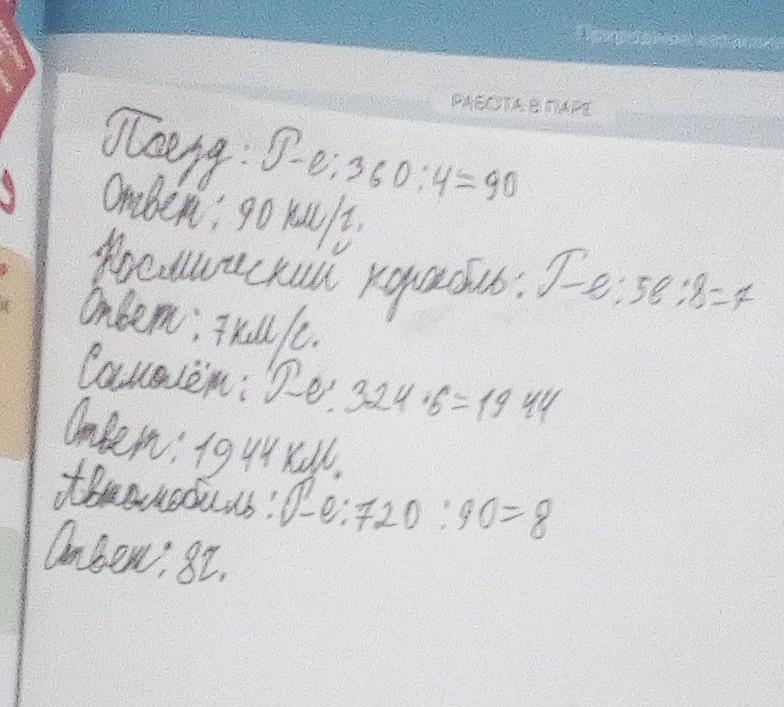 РАБОТА В ПАРЕ
Поезд: Р-е: 360:4=90
Ответ: 90 км/ч.
Космический корабль: Р-е: 56:8=7
Ответ: 7км/с.
Самолёт: Р-е: 324·6=1944
Ответ: 1944 км.
Автомобиль: Р-е: 720:90=8
Ответ: 8ч.